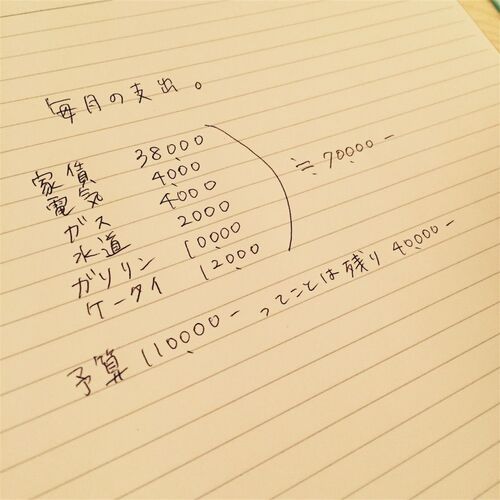 毎月の支出。
家賃 38000
電気 4000
ガス 4000
水道 2000
ガソリン 10000
ケータイ 12000
≒70000-
予算 110000- ってことは残り 40000-